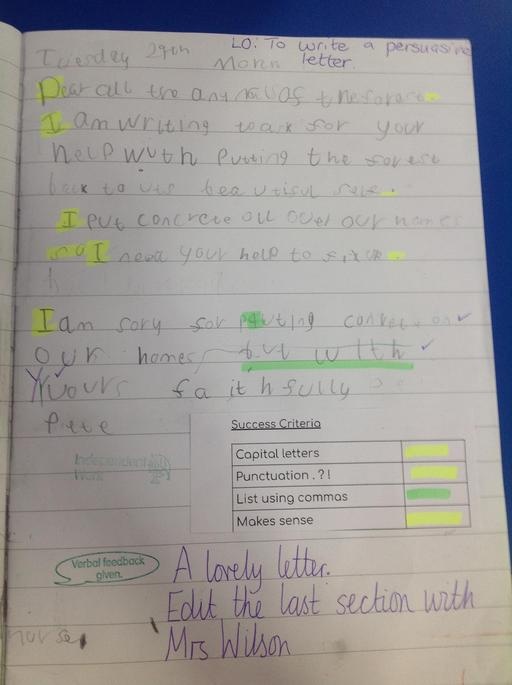 Tuesday 29th LO: To write a persuasive
March letter.
Dear all the anymals of the forest.
I am writing to ask for your
help with putting the forest
back to its beautiful self.
I put concrete all over our homes
so I need your help to fix it.
I am sory for putting concret on
our homes but with
Yours faithfully
Pete
Independent
Work
Success Criteria
Capital letters
Punctuation . ? !
List using commas
Makes sense
Verbal feedback
given.
A lovely letter.
Edit the last section with
Mrs Wilson